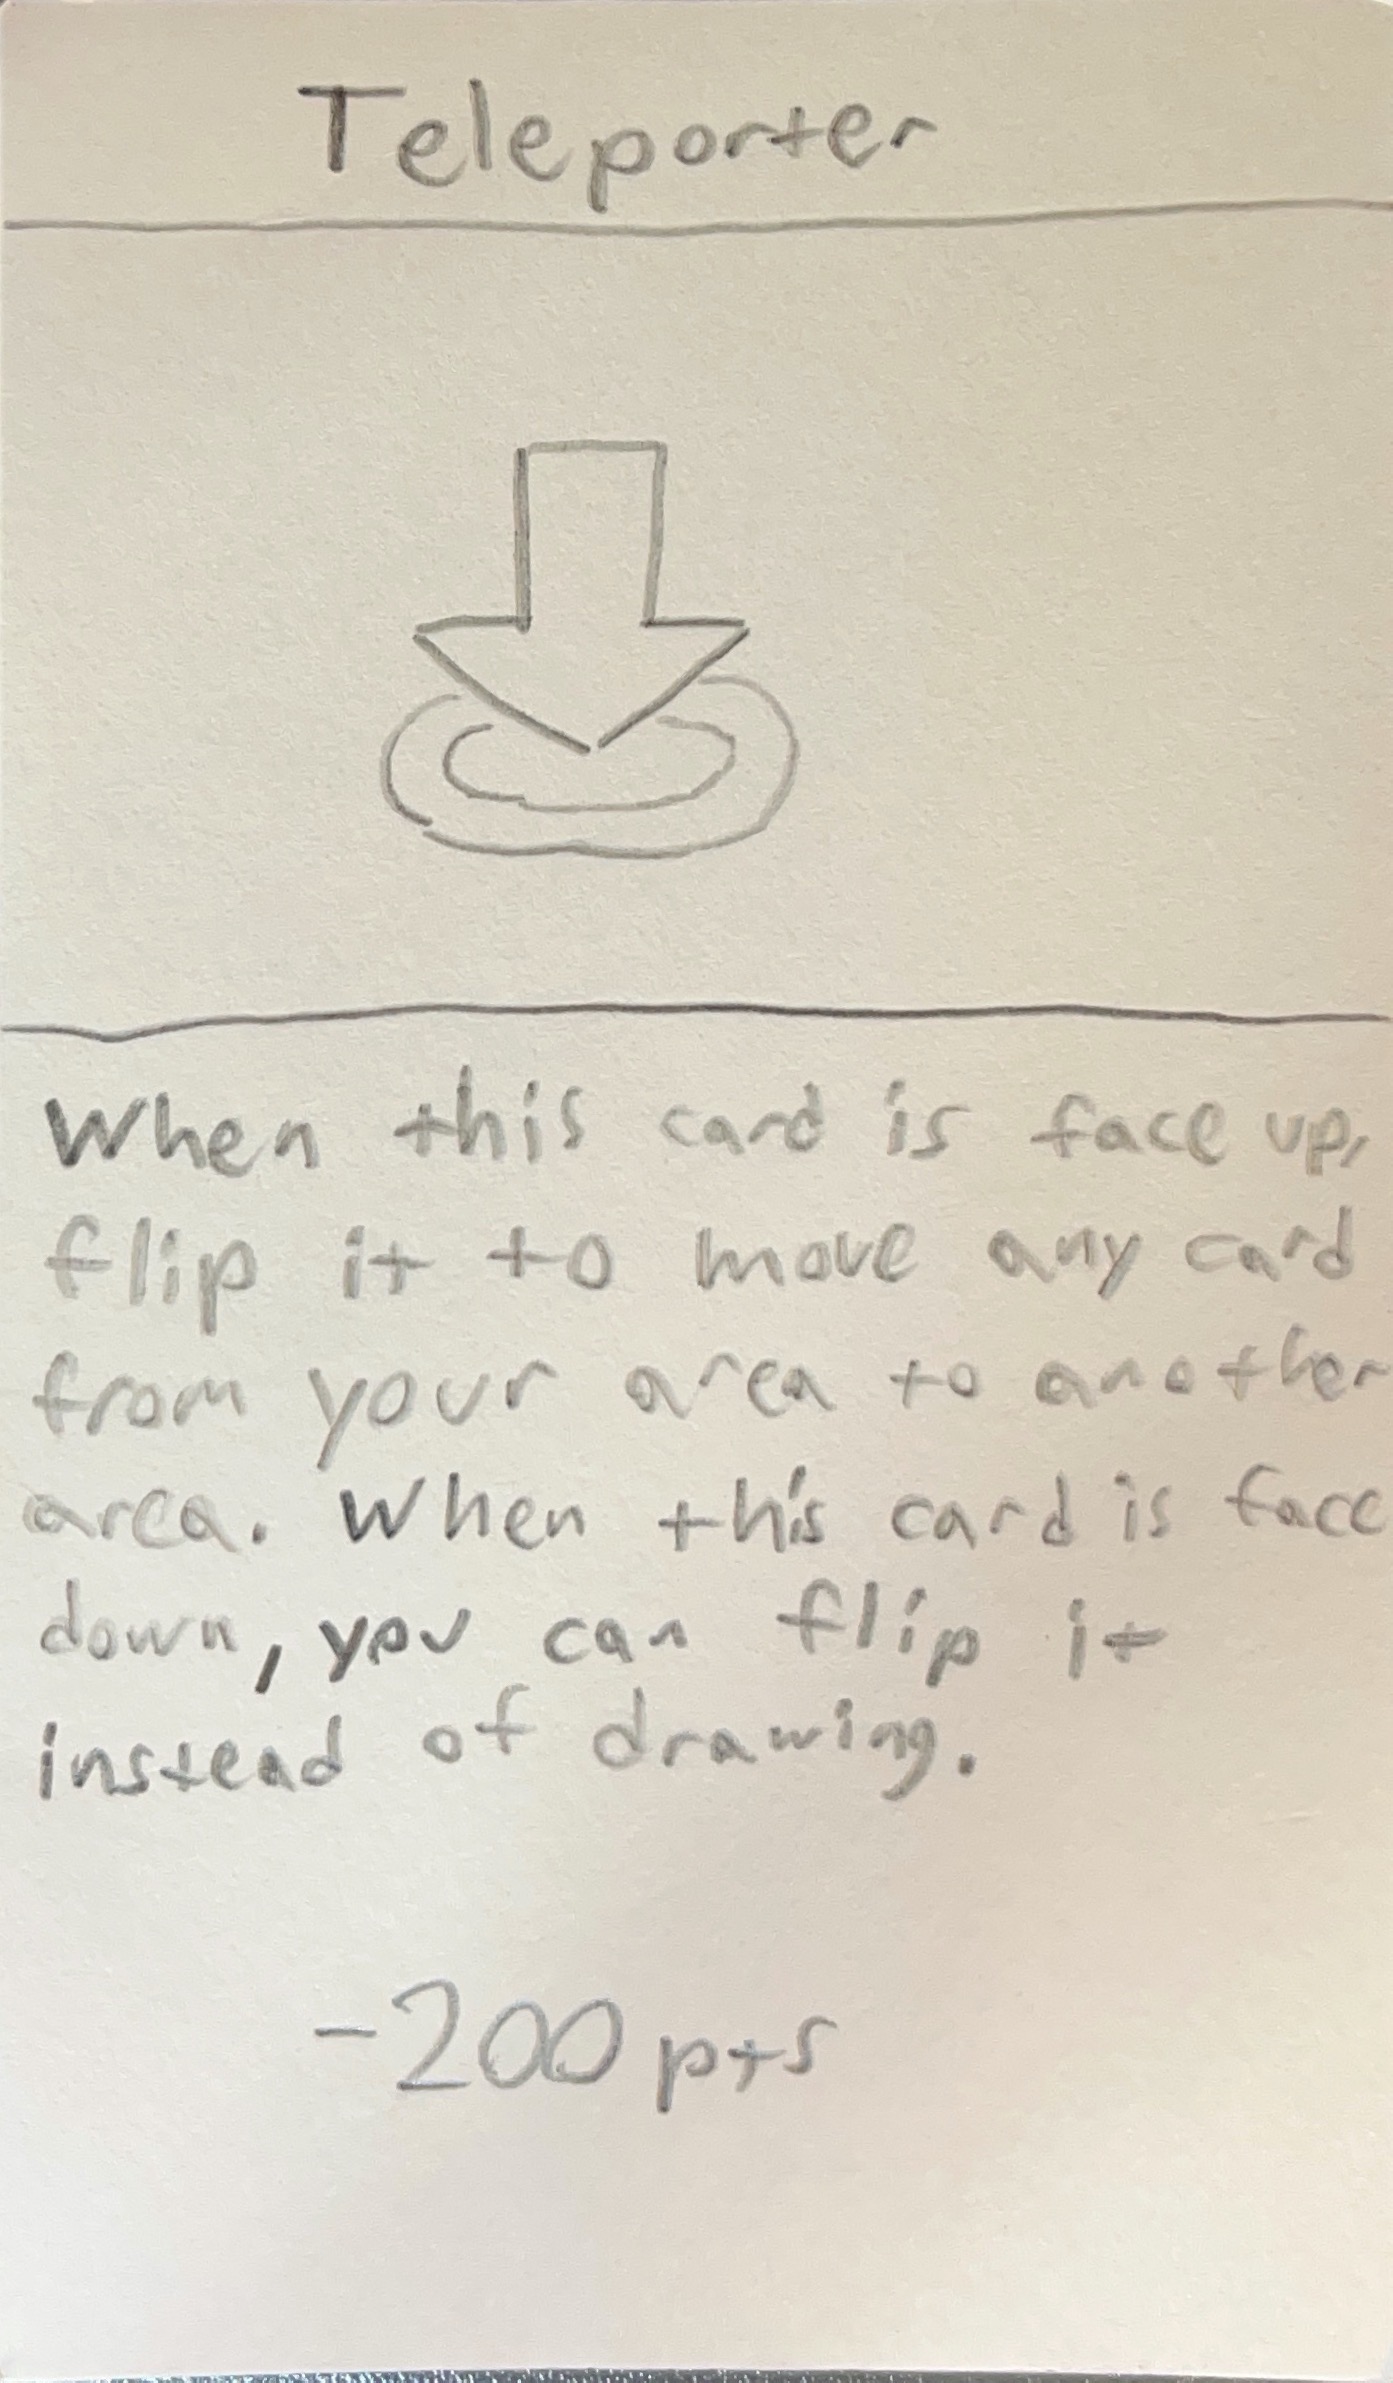 Teleporter
When this card is face up,
flip it to move any card
from your area to another
area. When this card is face
down, you can flip it
instead of drawing.
-200 pts